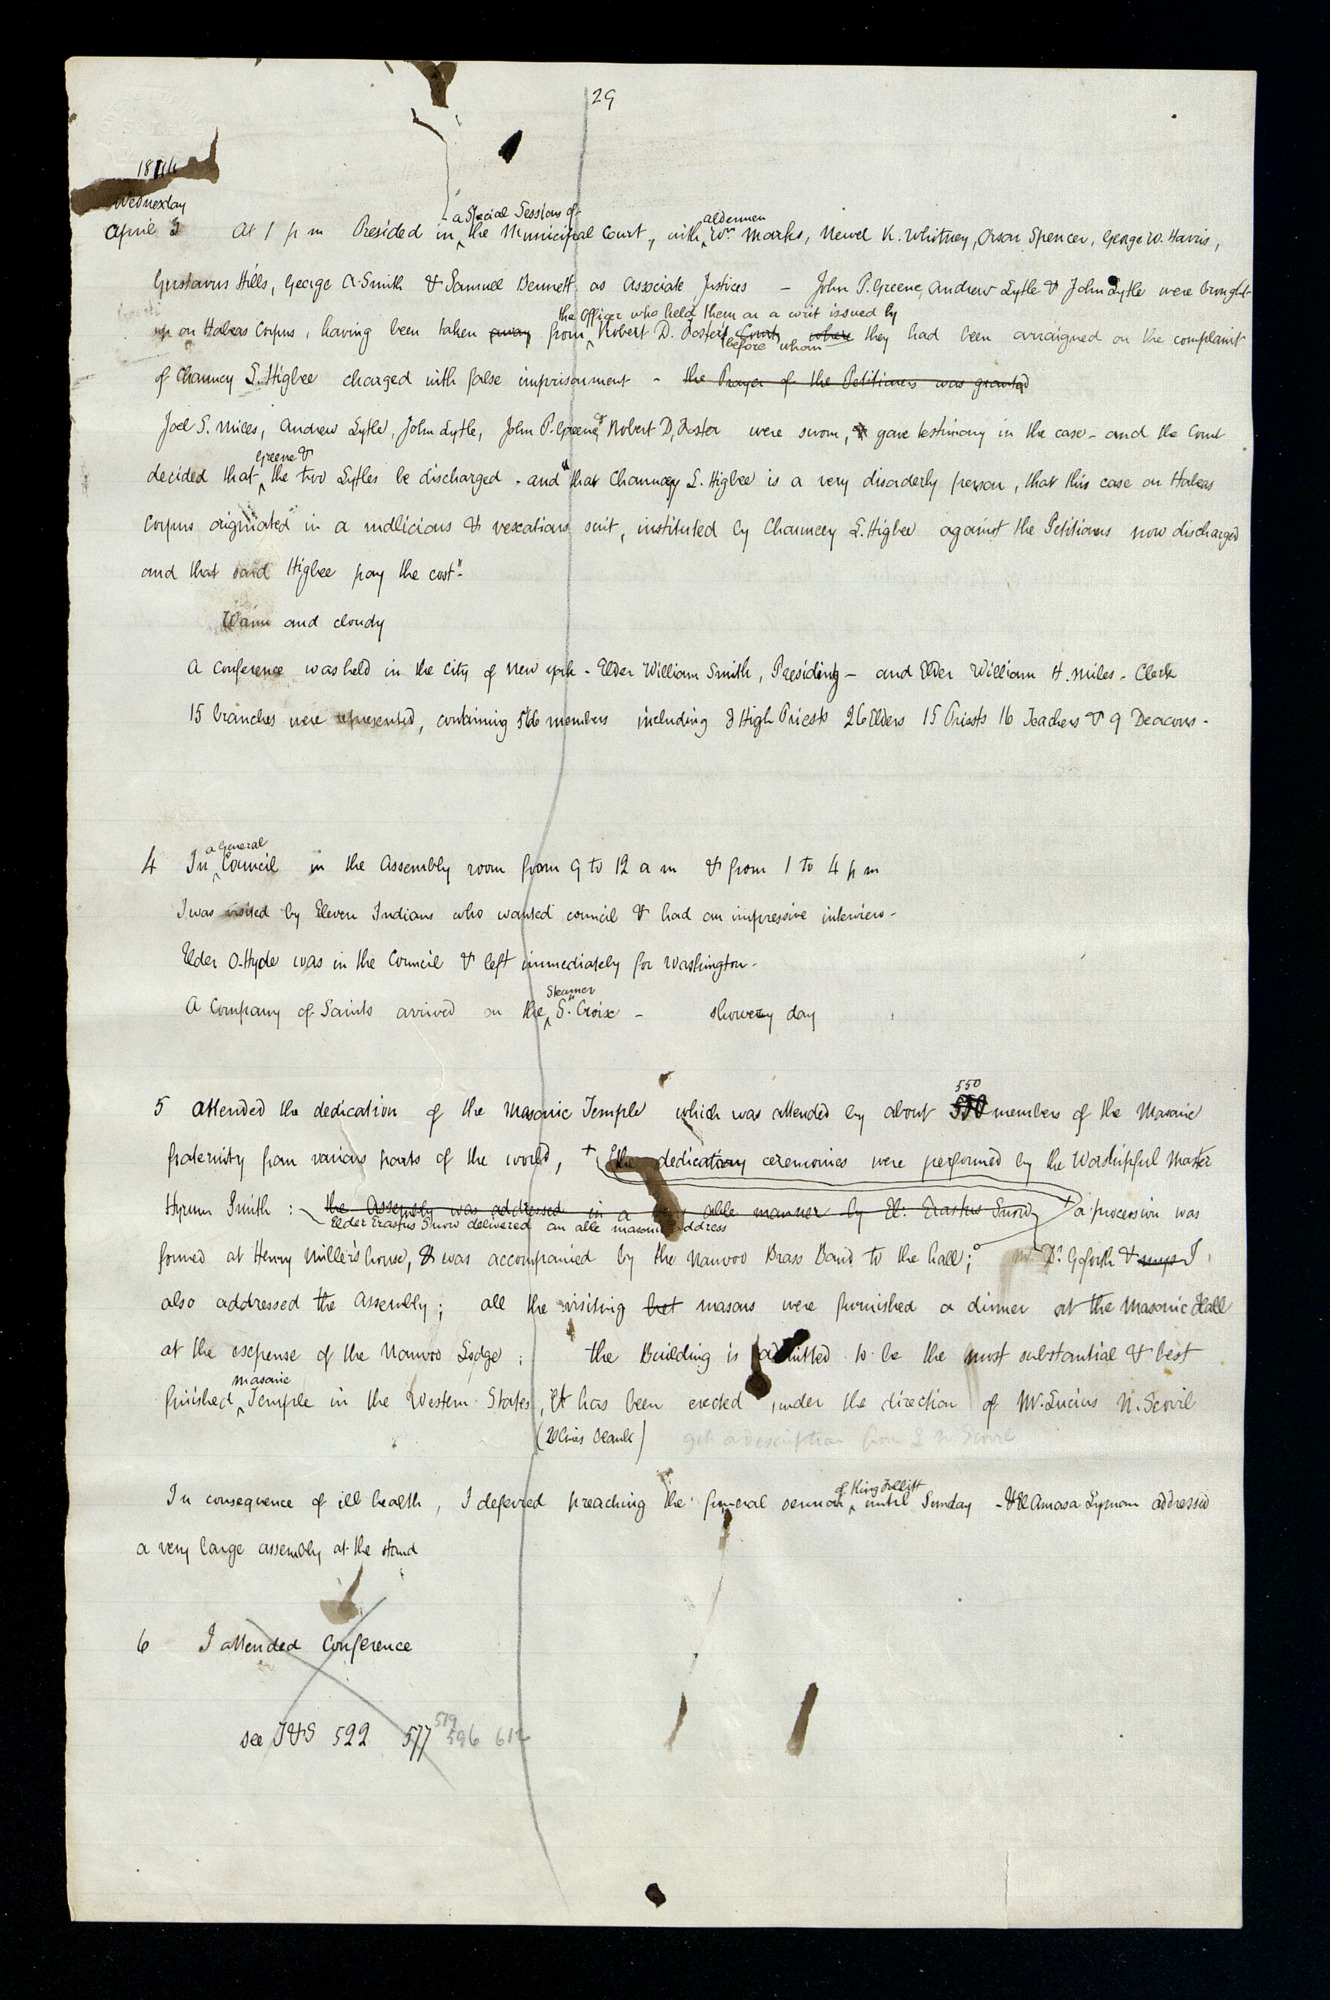 29
1844
Wednesday
a Special Session of aldermen
April 3 At 1 p m Presided in ^ the Municipal Court, with ^ Wm. Marks, Newel K. Whitney, Orson Spencer, George W. Harris,
Gustavus Hills, George A Smith & Samuel Bennett as Associate Justices — John P. Greene, Andrew Lytle & John Lytle were brought
the officer who held them on a writ issued by
up on Habeas Corpus, having been taken away from ^ Robert D. Foster Court where they had been arraigned on the complaint
before whom
of Chauncy L. Higbee charged with false imprisonment – the Prayer of the Petitioners was granted
Joel S. Miles, Andrew Lytle, John Lytle, John P. Greene & Robert D, Foster were sworn, & gave testimony in the case – and the Court
Greene &
decided that ^ the two Lytles be discharged – and "that Chauncey L. Higbee is a very disorderly person, that this case on Habeas
Corpus originated in a malicious & vexatious suit, instituted by Chauncey L. Higbee against the Petitioners now discharged
and that said Higbee pay the cost"–
Warm and cloudy
A conference was held in the City of New York – Elder William Smith, Presiding – and Elder William H. Miles – Clerk
15 branches were represented, containing 566 members including 2 High Priests 26 Elders 15 Priests 16 Teachers & 9 Deacons –
a General
4 In ^ Council in the Assembly room from 9 to 12 a m & from 1 to 4 p m
I was visited by Eleven Indians who wanted council & had an impressive interview –
Elder O. Hyde was in the Council & left immediately for Washington –
Steamer
A Company of Saints arrived on the ^ St. Croix – showery day
550
5 attended the dedication of the Masonic Temple which was attended by about 550 members of the Masonic
fraternity from various parts of the world, + the dedicatory ceremonies were performed by the Worshipful Master
Hyrum Smith : the Assembly was addressed in a able manner by El: Erastus Snow + a procession was
Elder Erastus Snow delivered an able masonic address
formed at Henry Miller's house, & was accompanied by the Nauvoo Brass Band to the hall; Dr. Goforth & I
also addressed the Assembly; all the visiting masons were furnished a dinner at the Masonic Hall
at the expense of the Nauvoo Lodge : the Building is admitted to be the most substantial & best
masonic
finished ^ Temple in the Western States, It has been erected under the direction of Mr. Lucius N. Scovil
(20 lines blank) get a description from L N Scovil
of King Follett
In consequence of ill health, I deferred preaching the funeral sermon ^ until Sunday – & El Amasa Lyman addressed
a very large assembly at the stand
6 I attended Conference
see T&S 522 577 579 596 612